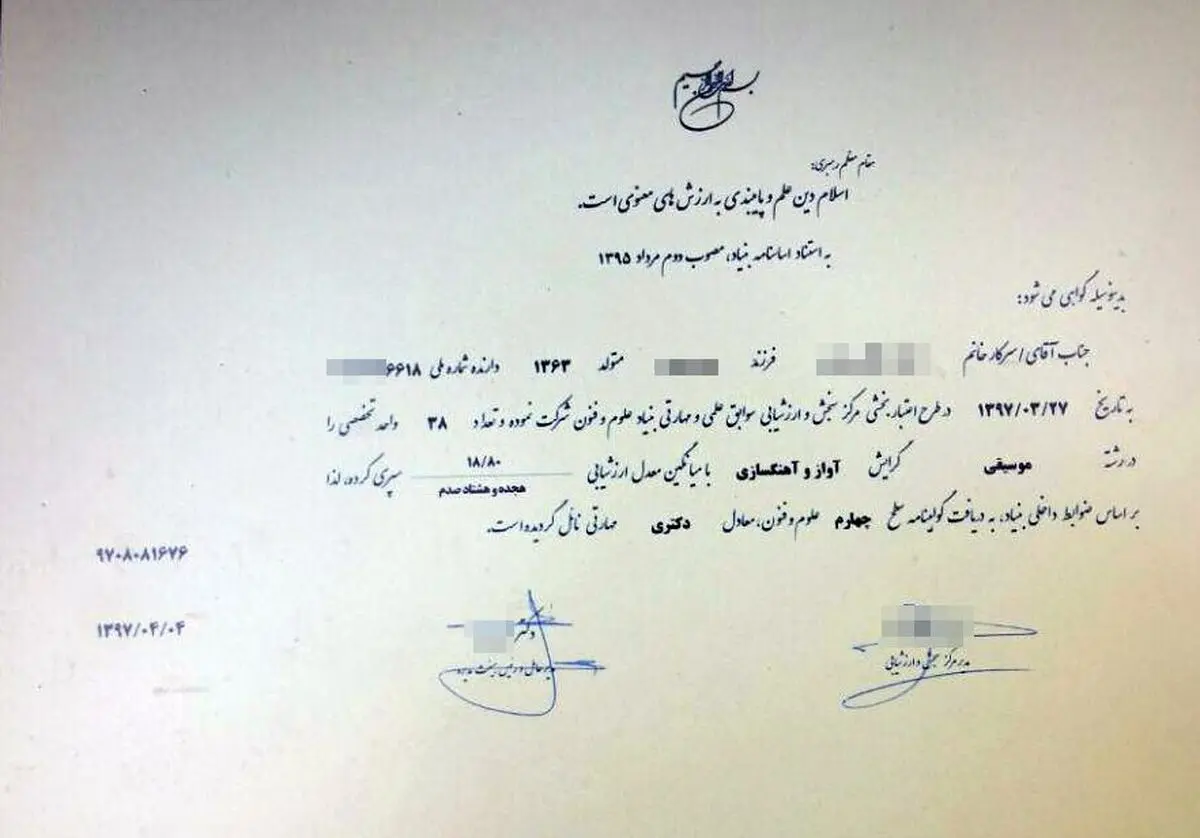 بسم الله الرحمن الرحیم
مقام معظم رهبری:
اسلام دین علم و پایبندی به ارزش های معنوی است.
به استناد اساسنامه بنیاد، مصوب دوم مرداد ۱۳۹۵
بدینوسیله گواهی می شود:
جناب آقای / سرکار خانم فرزند متولد ۱۳۶۳ دارنده شماره ملی ۶۶۱۸
به تاریخ ۱۳۹۷/۰۳/۲۷ در طرح اعتبار بخشی مرکز سنجش و ارزشیابی سوابق علمی و مهارتی بنیاد علوم و فنون شرکت نموده و تعداد ۳۸ واحد تخصصی را
در رشته موسیقی گرایش آواز و آهنگسازی با میانگین معدل ارزشیابی ۱۸/۸۰ سپری کرده، لذا
هجده و هشتاد صدم
بر اساس ضوابط داخلی بنیاد، به دریافت گواهینامه سطح چهارم علوم و فنون، معادل دکتری مهارتی نائل گردیده است.
۹۷۰۸۰۸۱۶۷۶
۱۳۹۷/۰۴/۰۴
دکتر
مدیر مرکز سنجش و ارزشیابی
مدیر عامل و رئیس هیئت مدیره